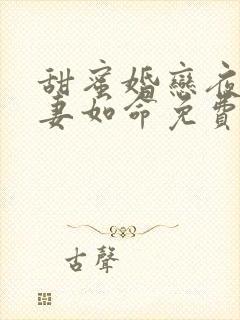 甜蜜婚戀夜
妻如命免費
古聲